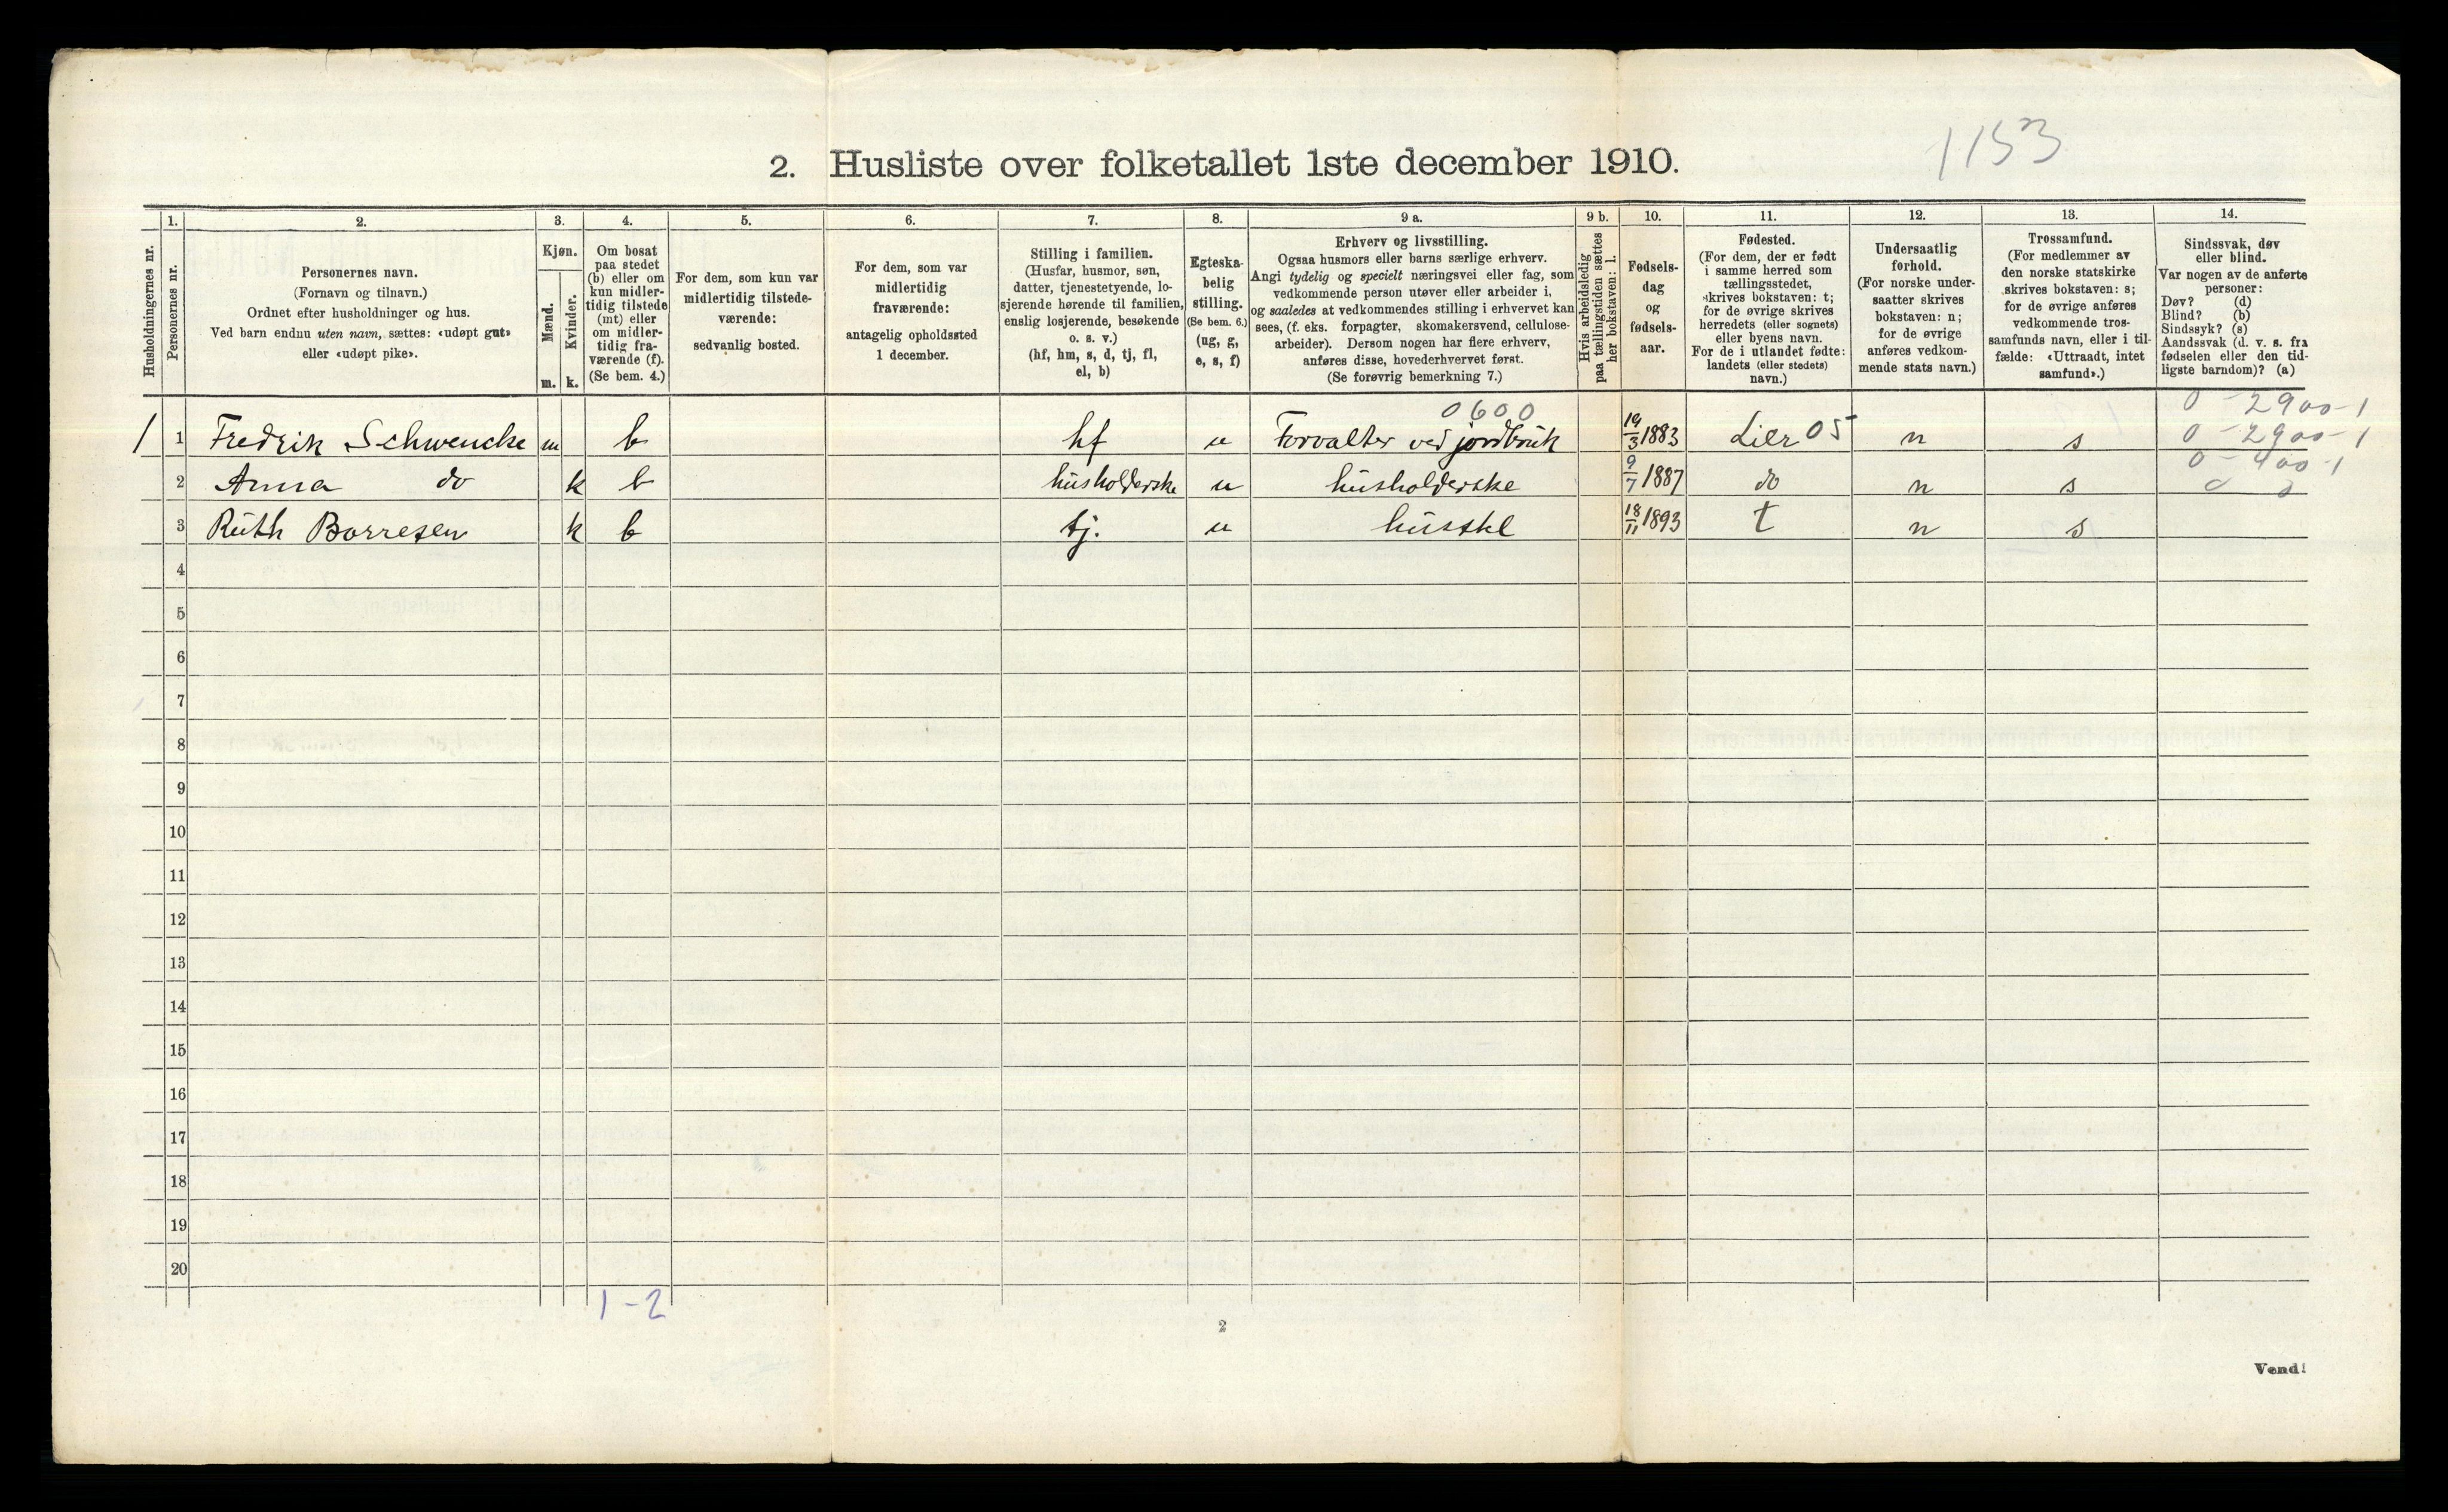 1153
2. Husliste over folketallet 1ste december 1910.
Husholdningernes nr.
1.
Personernes nr.
2.
Personernes navn.
(Fornavn og tilnavn.)
Ordnet efter husholdninger og hus.
Ved barn endnu uten navn, sættes: «udøpt gut»
eller «udøpt pike».
3.
Kjøn.
Mænd.
m.
Kvinder.
k.
4.
Om bosat
paa stedet
(b) eller om
kun midler-
tidig tilstede
(mt) eller
om midler-
tidig fra-
værende (f).
(Se bem. 4.)
5.
For dem, som kun var
midlertidig tilstede-
værende:
sedvanlig bosted.
6.
For dem, som var
midlertidig
fraværende:
antagelig opholdssted
1 december.
7.
Stilling i familien.
(Husfar, husmor, søn,
datter, tjenestetyende, lo-
sjerende hørende til familien,
enslig losjerende, besøkende
o. s. v.)
(hf, hm, s, d, tj, fl,
el, b)
8.
Egteska-
belig
stilling.
(Se bem. 6.)
(ug, g,
e, s, f)
9 a.
Erhverv og livsstilling.
Ogsaa husmors eller barns særlige erhverv.
Angi tydelig og specielt næringsvei eller fag, som
vedkommende person utøver eller arbeider i,
og saaledes at vedkommendes stilling i erhvervet kan
sees, (f. eks. forpagter, skomakersvend, cellulose-
arbeider). Dersom nogen har flere erhverv,
anføres disse, hovederhvervet først.
(Se forøvrig bemerkning 7.)
9 b.
Hvis arbeidsledig
paa tællingstiden sættes
her bokstaven: l.
10.
Fødsels-
dag
og
fødsels-
aar.
11.
Fødested.
(For dem, der er født
i samme herred som
tællingsstedet,
skrives bokstaven: t;
for de øvrige skrives
herredets (eller sognets)
eller byens navn.
For de i utlandet fødte:
landets (eller stedets)
navn.)
12.
Undersaatlig
forhold.
(For norske under-
saatter skrives
bokstaven: n;
for de øvrige
anføres vedkom-
mende stats navn.)
13.
Trossamfund.
(For medlemmer av
den norske statskirke
skrives bokstaven: s;
for de øvrige anføres
vedkommende tros-
samfunds navn, eller i til-
fælde: «Uttraadt, intet
samfund».)
14.
Sindssvak, døv
eller blind.
Var nogen av de anførte
personer:
Døv? (d)
Blind? (b)
Sindssyk? (s)
Aandssvak (d. v. s. fra
fødselen eller den tid-
ligste barndom)? (a)
0600 0-2900-1
1 1 Fredrik Schwencke m b hf u Forvalter ved jordbruk 19/3 1883 Lier 05 n s 0-2900-1
0-400-1
2 Anna do k b husholderske u husholderske 9/7 1887 do n s
3 Ruth Borresen k b tj. u husstel 18/11 1893 t n s
4
5
6
7
8
9
10
11
12
13
14
15
16
17
18
19
20
1-2
2
Vend!